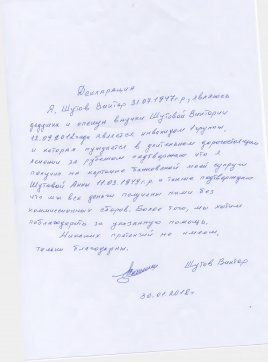 Декларация
Я, Шутов Виктор 31.07.1947г.р., являюсь
дедушка и опекун внучки Шутовой Виктории
12.09.2012года является инвалидом 1 группы,
и которая нуждается в длительном дорогостоящем
лечении за рубежом подтверждаю что я
получил на карточке банковской моей супруги
Шутовой Анны 11.03.1949г.р. а также подтверждаю
что мы все деньги получили нами без
коммисионных сборов. Более того, мы хотим
поблагодарить за указанную помощь.
Никаких претензий не имеем,
только благодарны.
Шутов Виктор
30.01.2018г